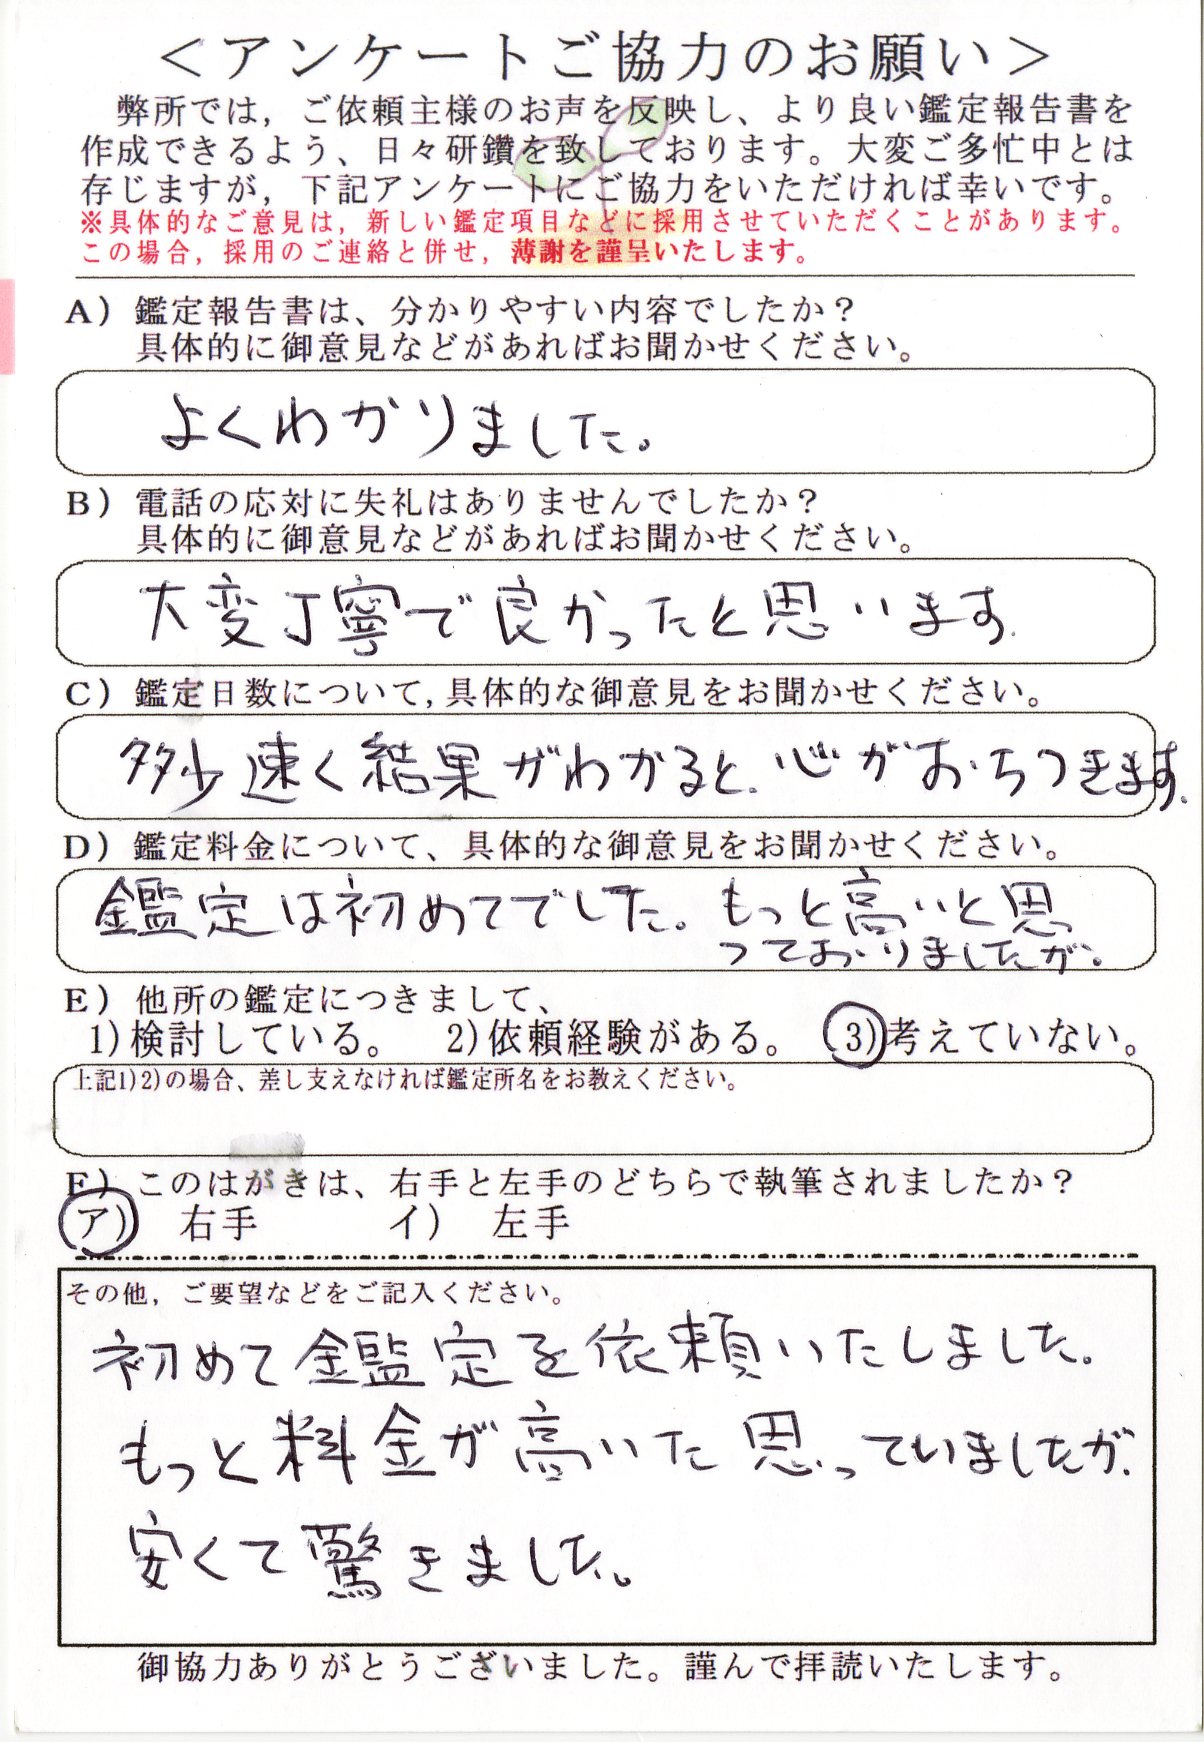 ＜アンケートご協力のお願い＞
弊所では，ご依頼主様のお声を反映し、より良い鑑定報告書を
作成できるよう、日々研鑽を致しております。大変ご多忙中とは
存じますが，下記アンケートにご協力をいただければ幸いです。
※具体的なご意見は，新しい鑑定項目などに採用させていただくことがあります。
この場合，採用のご連絡と併せ，薄謝を謹呈いたします。
A）鑑定報告書は、分かりやすい内容でしたか？
具体的に御意見などがあればお聞かせください。
よくわかりました。
B）電話の応対に失礼はありませんでしたか？
具体的に御意見などがあればお聞かせください。
大変丁寧で良かったと思います.
C）鑑定日数について,具体的な御意見をお聞かせください。
多少速く結果がわかると、心がおちつきます.
D）鑑定料金について、具体的な御意見をお聞かせください。
鑑定は初めてでした。もっと高いと思
っておりましたが。
E）他所の鑑定につきまして、
1)検討している。 2)依頼経験がある。 3)考えていない。
上記1)2)の場合、差し支えなければ鑑定所名をお教えください。
F）このはがきは、右手と左手のどちらで執筆されましたか？
ア） 右手 イ） 左手
その他，ご要望などをご記入ください。
初めて鑑定を依頼いたしました。
もっと料金が高いた思っていましたが、
安くて驚きました。
御協力ありがとうございました。謹んで拝読いたします。